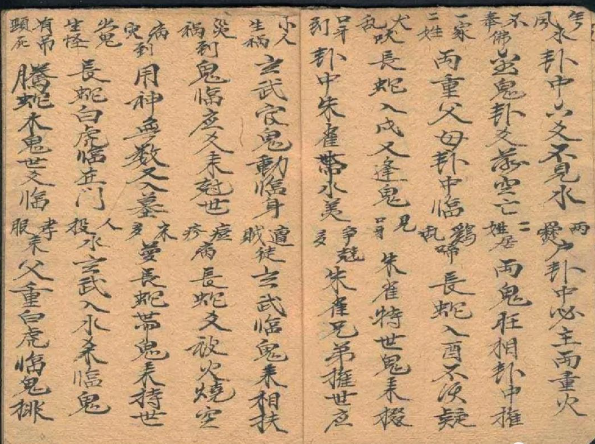 風水卦中六爻不見水
户卦中必主兩重火
不奉佛鬼卦爻落空亡
二姓居兩鬼旺相卦中權
一家二姓兩重父母卦中臨
雞亂啼長蛇入酉不須疑
犬吠亂長蛇入戌又逢鬼
口舌見朱雀持世鬼來掇
口舌到卦中朱雀帶水
爭競多朱雀兄弟世應
小人生禍玄武官鬼動臨身
遭賊徒玄武臨鬼來相扶
災禍到鬼臨應爻來尅世
痘疹病長蛇爻被火燒空
病到用神無數又入墓
多夢長蛇帶鬼來持世
鬼生怪長蛇白虎臨在門
人投水玄武入水來臨鬼
有吊頸死騰蛇木鬼世爻臨
孝服來父重白虎臨鬼排